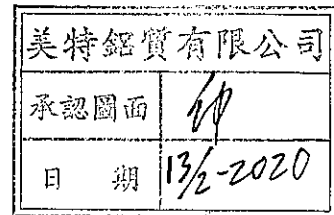 美特鋁質有限公司
承認圖面
日 期 13/2-2020